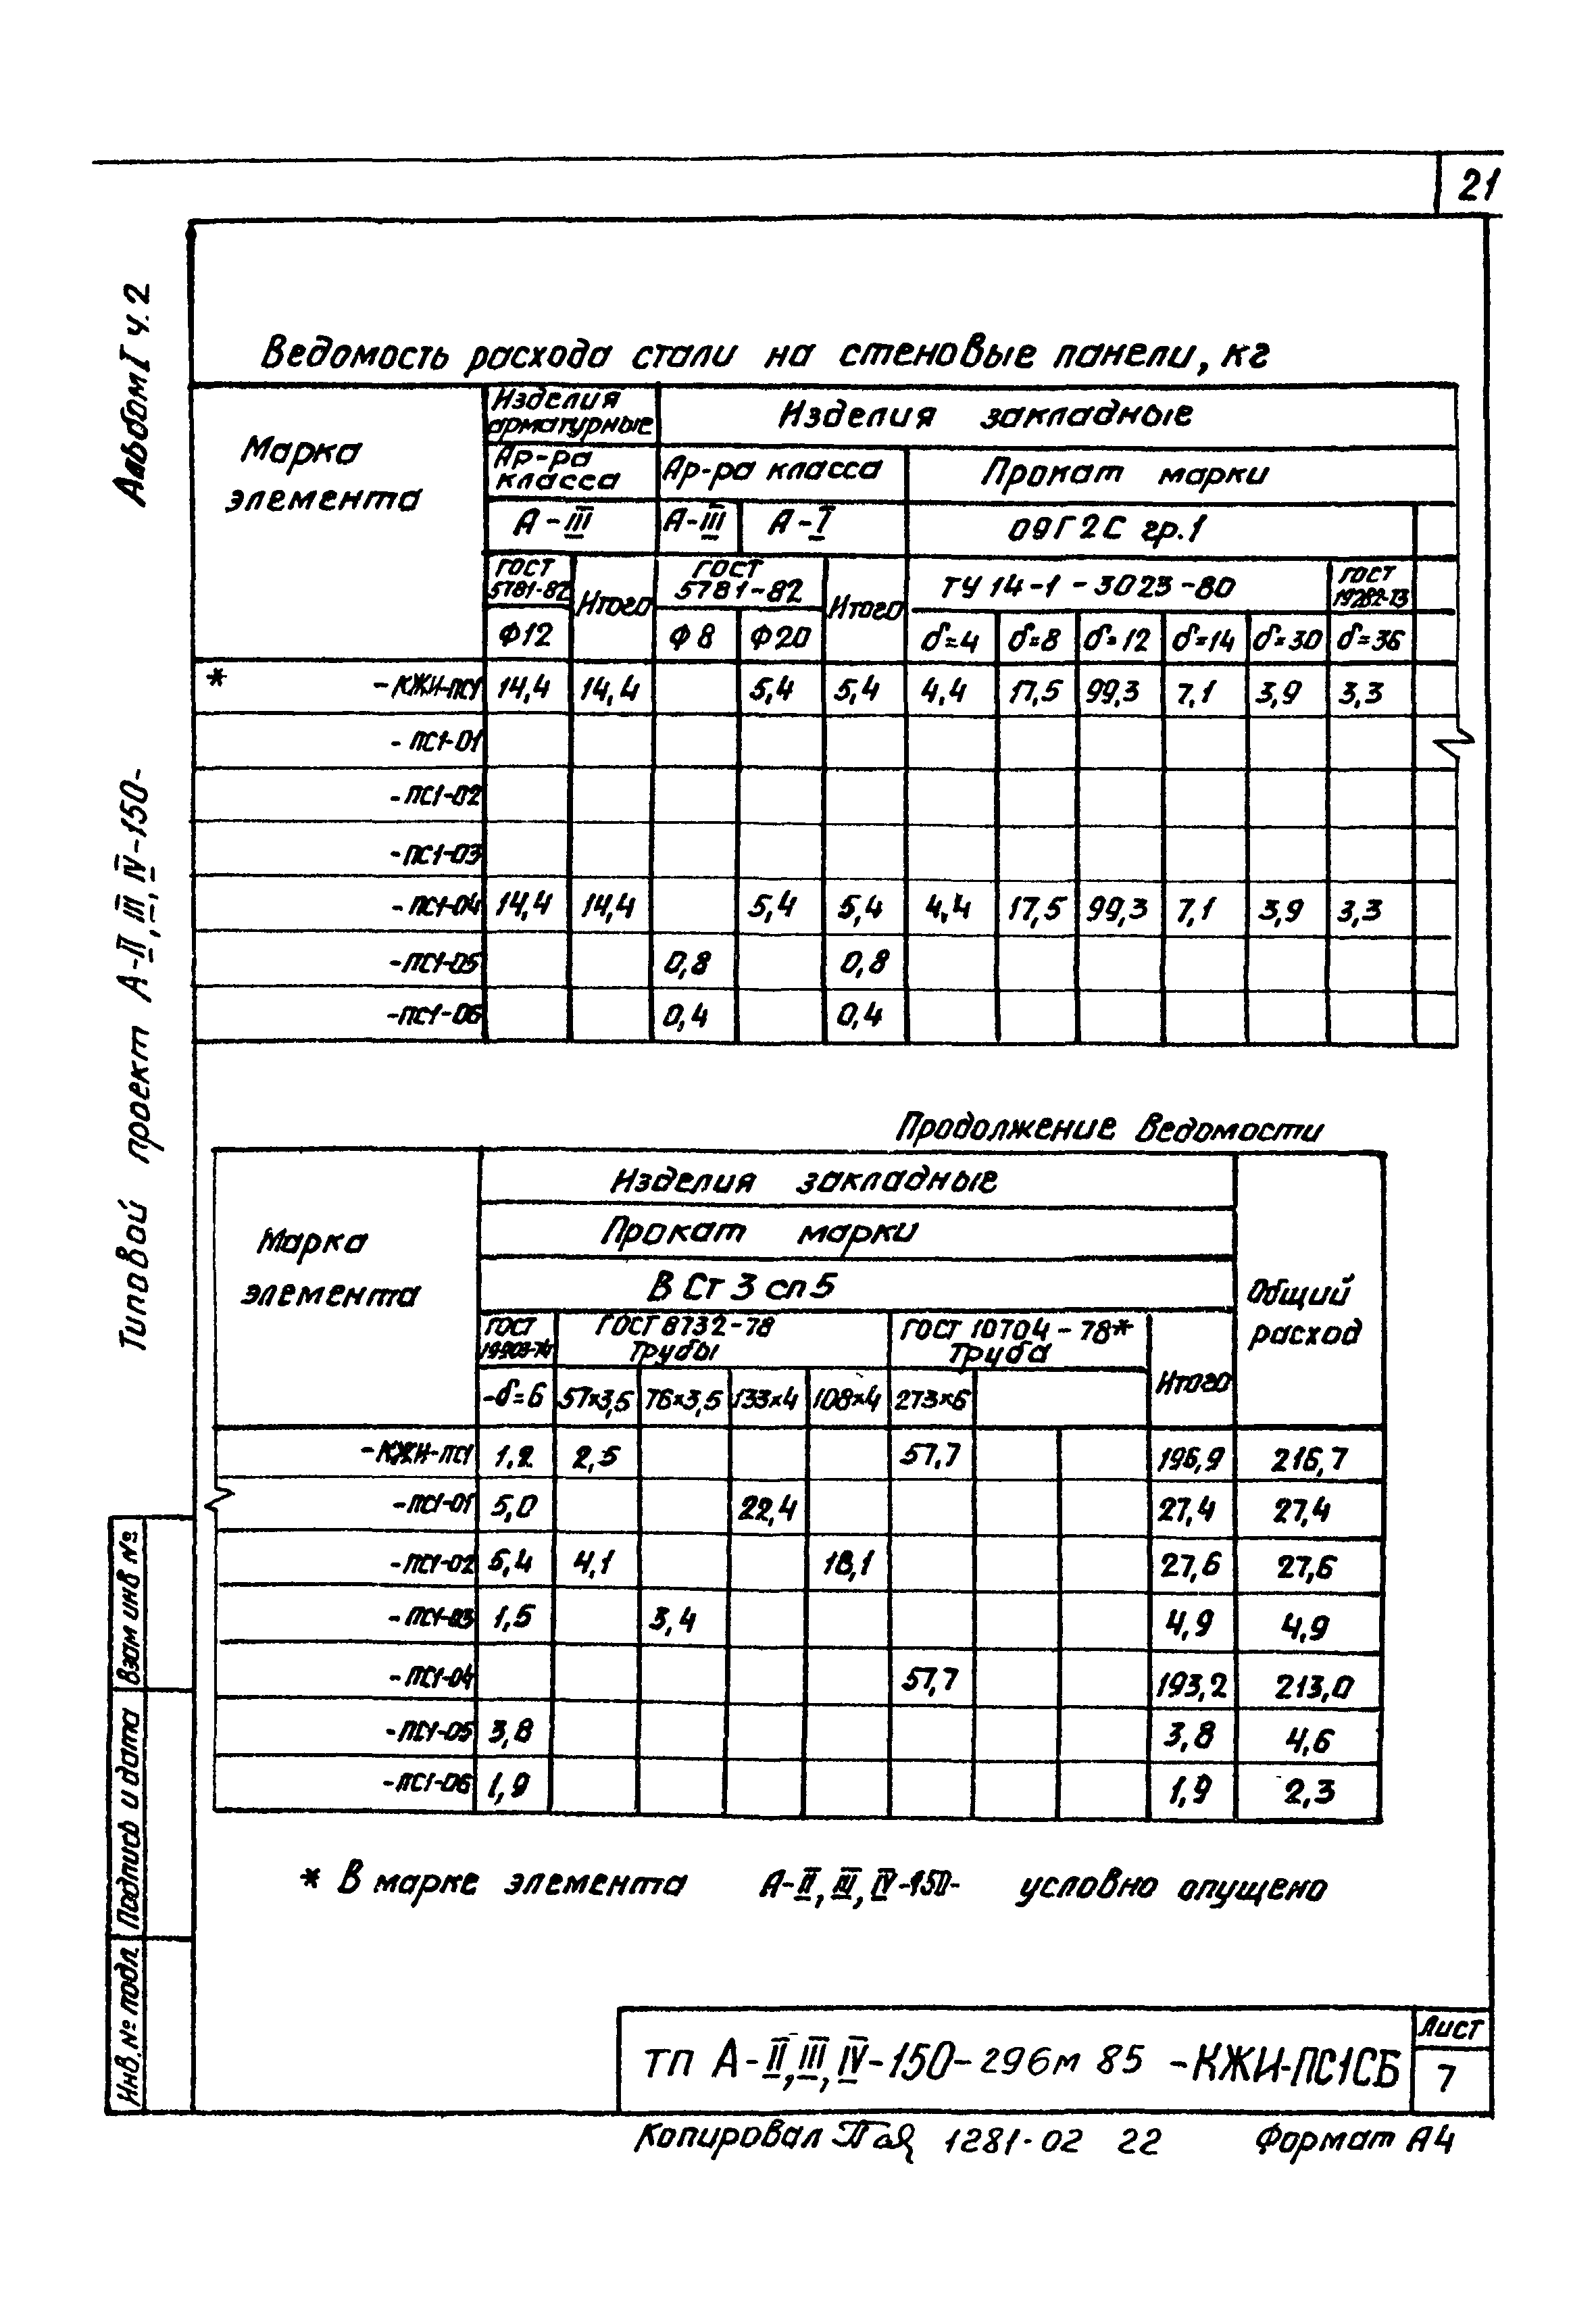 21
Альбом I ч. 2
Типовой проект А-II, III, IV-150-
Ведомость расхода стали на стеновые панели, кг
Марка элемента
Изделия арматурные
Изделия закладные
Ар-ра класса
Ар-ра класса
Прокат марки
А-III
А-III
А-I
09Г2С гр.1
ГОСТ 5781-82
Итого
ГОСТ 5781-82
Итого
ТУ 14-1-3023-80
ГОСТ 19282-73
Ф12 Ф8 Ф20 δ=4 δ=8 δ=12 δ=14 δ=30 δ=36
* -КЖИ-ПС1 14,4 14,4 5,4 5,4 4,4 17,5 99,3 7,1 3,9 3,3
-ПС1-01
-ПС1-02
-ПС1-03
-ПС1-04 14,4 14,4 5,4 5,4 4,4 17,5 99,3 7,1 3,9 3,3
-ПС1-05 0,8 0,8
-ПС1-06 0,4 0,4
Продолжение ведомости
Марка элемента
Изделия закладные
Прокат марки
В Ст 3 сп 5
Общий расход
ГОСТ 19903-74
ГОСТ 8732-78 Трубы
ГОСТ 10704-78* Труба
Итого
-δ=6 57×3,5 76×3,5 133×4 108×4 273×6
-КЖИ-ПС1 1,2 2,5 57,7 196,9 216,7
-ПС1-01 5,0 22,4 27,4 27,4
-ПС1-02 5,4 4,1 18,1 27,6 27,6
-ПС1-03 1,5 3,4 4,9 4,9
-ПС1-04 57,7 193,2 213,0
-ПС1-05 3,8 3,8 4,6
-ПС1-06 1,9 1,9 2,3
* В марке элемента А-II, III, IV-150- условно опущено
Взам инв №
Подпись и дата
Инв. № подл.
ТП А-II, III, IV-150-296м 85 -КЖИ-ПС1СБ
Лист
7
Копировал 1281-02 22 Формат А4